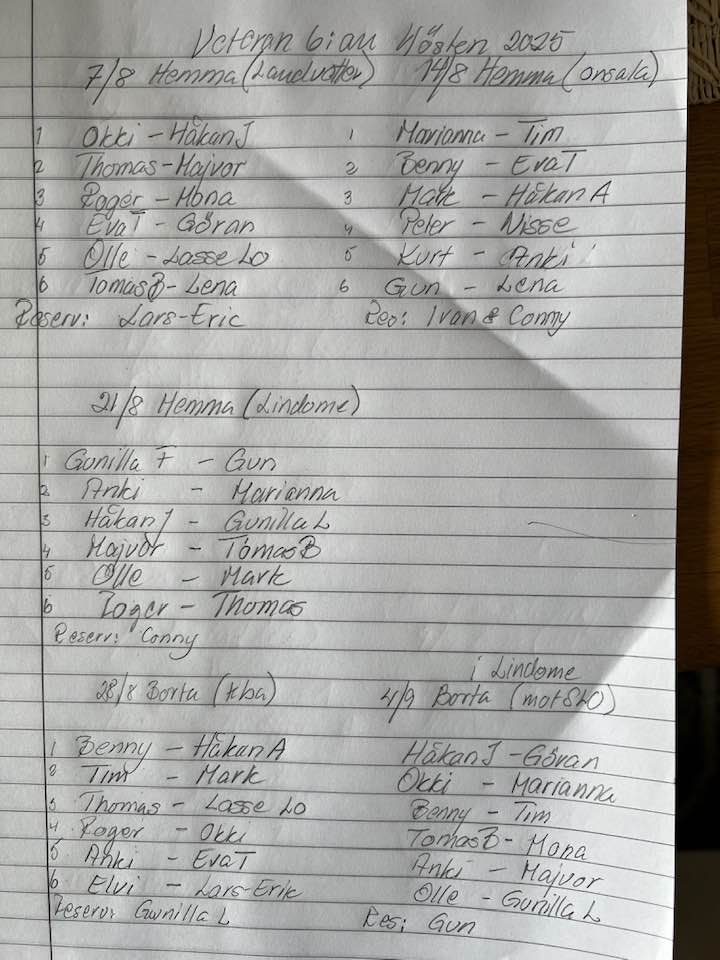 Veteran 6:an Hösten 2025
7/8 Hemma (Landvetter)
1 Okki - Håkan J
2 Thomas - Majvor
3 Roger - Mona
4 Eva T - Göran
5 Olle - Lasse Lo
6 Tomas B - Lena
Reserv: Lars-Eric
14/8 Hemma (onsala)
1 Marianna - Tim
2 Benny - Eva T
3 Mark - Håkan A
4 Peter - Nisse
5 Kurt - Anki
6 Gun - Lena
Res: Ivan & Conny
21/8 Hemma (Lindome)
1 Gunilla F - Gun
2 Anki - Marianna
3 Håkan J - Gunilla L
4 Majvor - Tomas B
5 Olle - Mark
6 Roger - Thomas
Reserv: Conny
28/8 Borta (kba)
1 Benny - Håkan A
2 Tim - Mark
3 Thomas - Lasse Lo
4 Roger - Okki
5 Anki - Eva T
6 Elvi - Lars-Erik
Reserv: Gunilla L
i Lindome
4/9 Borta (mot SLO)
Håkan J - Göran
Okki - Marianna
Benny - Tim
Tomas B - Mona
Anki - Majvor
Olle - Gunilla L
Res: Gun